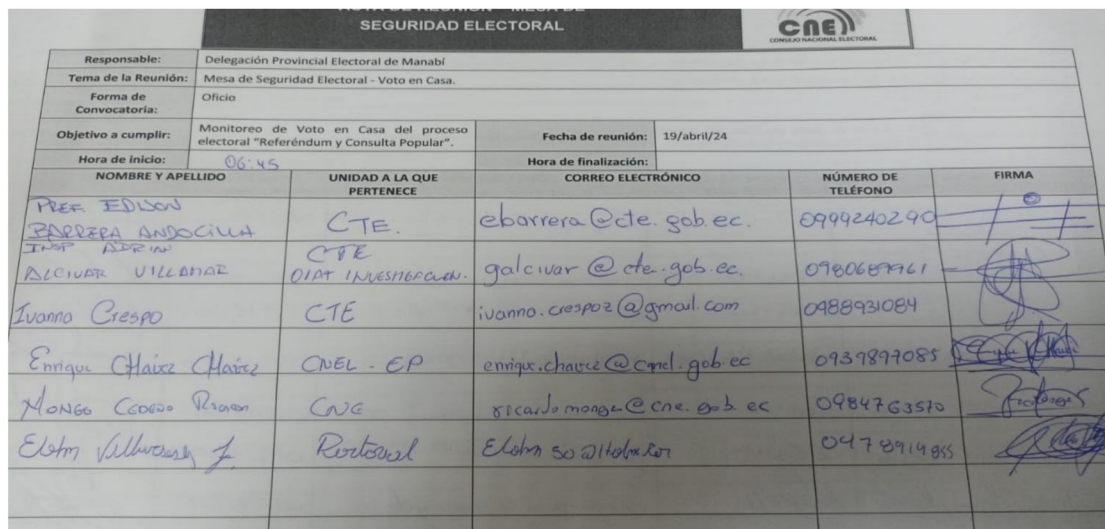 SEGURIDAD ELECTORAL
cne
CONSEJO NACIONAL ELECTORAL
Responsable: Delegación Provincial Electoral de Manabí
Tema de la Reunión: Mesa de Seguridad Electoral - Voto en Casa.
Forma de Convocatoria: Oficio
Objetivo a cumplir: Monitoreo de Voto en Casa del proceso electoral "Referéndum y Consulta Popular". Fecha de reunión: 19/abril/24
Hora de inicio: 06:45 Hora de finalización:
NOMBRE Y APELLIDO UNIDAD A LA QUE PERTENECE CORREO ELECTRÓNICO NÚMERO DE TELÉFONO FIRMA
PREF. EDISON
BARRERA ANDOCILLA CTE. ebarrera@cte.gob.ec. 0999240290
INSP ADRIAN
ALCIVAR CTE galcivar@cte.gob.ec.
Ivanna Crespo CTE ivanna.crespoz@gmail.com 0988931084
Enrique Chávez Chávez CNEL - EP 0939897085
CNE 0984763570